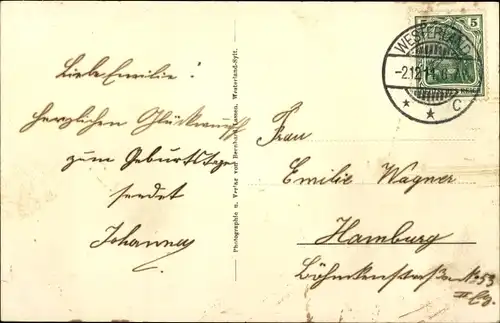 Liebe Emilie!
herzlichen Glückwunsch
zum Geburtstage
sendet
Johanna
Photographie u. Verlag von Bernhard Lassen, Westerland-Sylt.
5
WESTERLAND
-2.12.11. 8
* * C
Frau
Emilie Wagner
Hamburg
Böhmkenstraße No 53
II